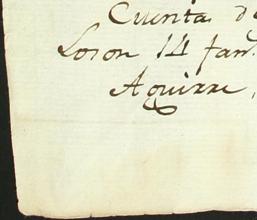 Cuenta d
Loron 14 Jan.
Aguirre,